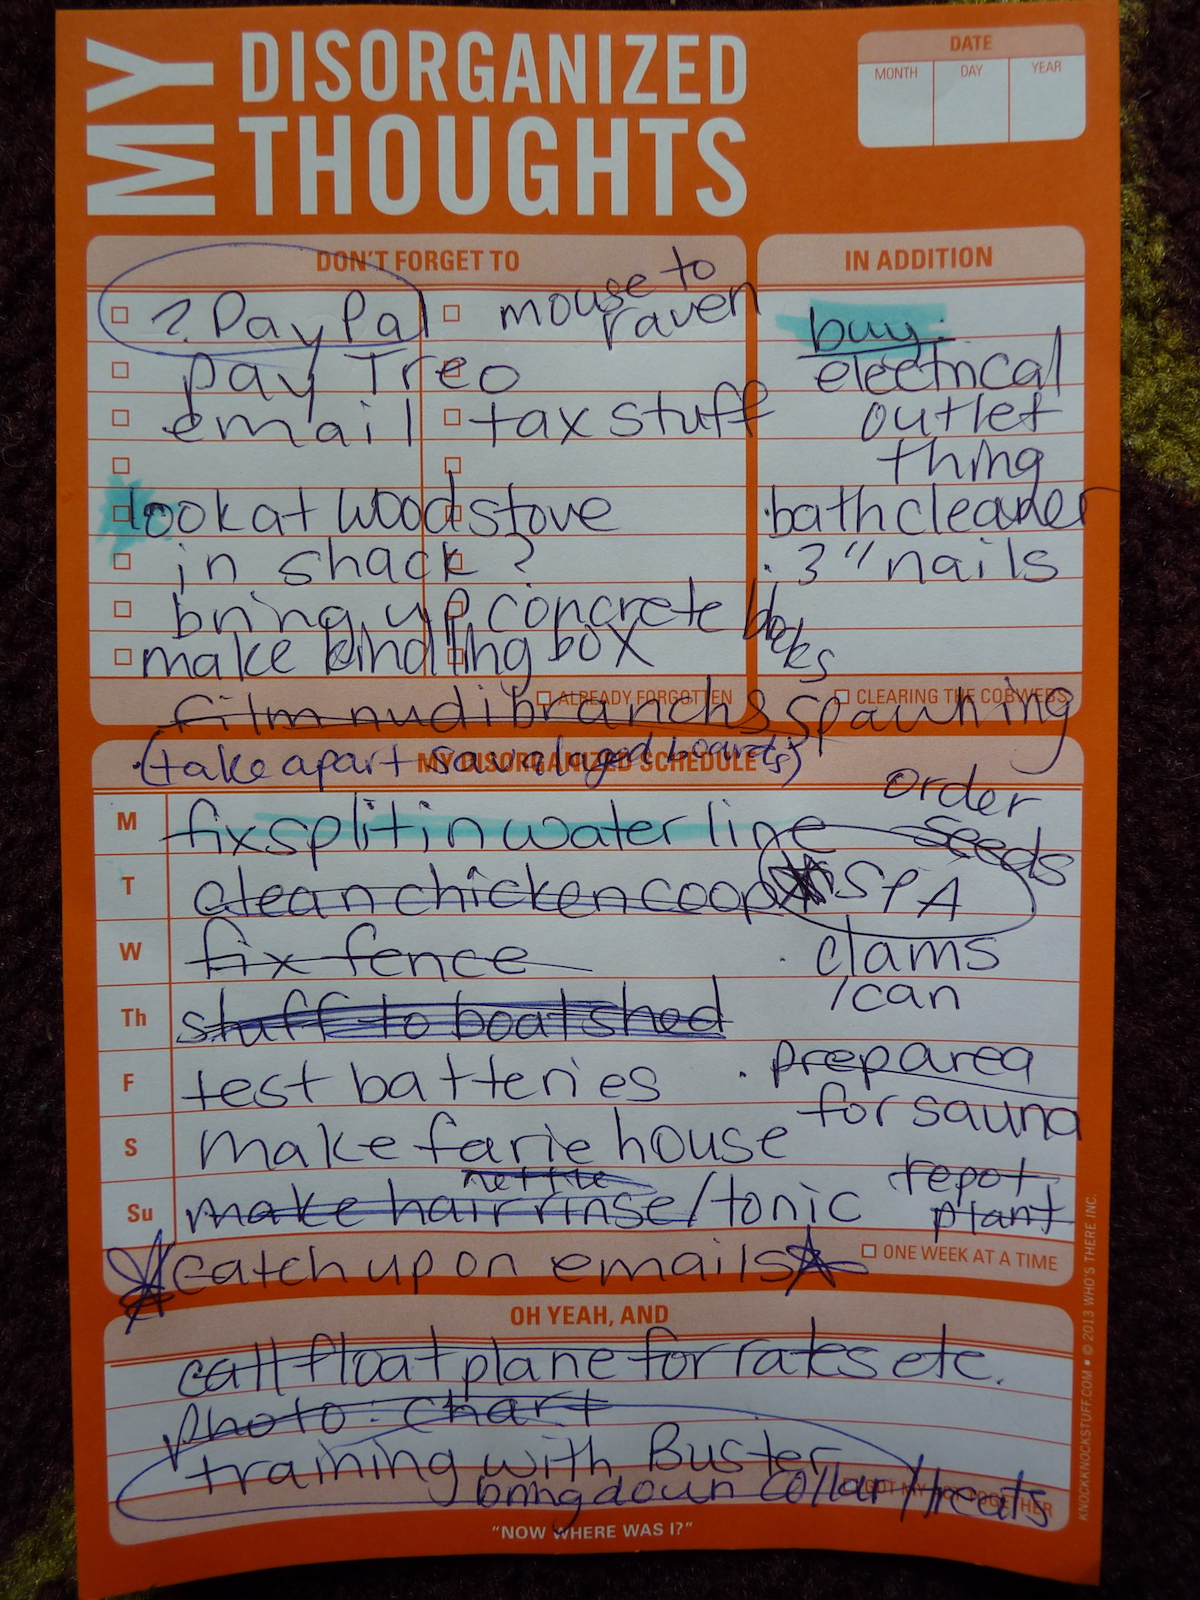 MY DISORGANIZED THOUGHTS
DATE
MONTH DAY YEAR
DON'T FORGET TO
? PayPal
mouse to
raven
pay Treo
email
tax stuff
look at woodstove
in shack ?
bring up concrete blocks
make kindling box
ALREADY FORGOTTEN
IN ADDITION
buy:
electrical
outlet
thing
bath cleaner
3" nails
CLEARING THE COBWEBS
film nudibranchs spawning
(take apart savalaged boards)
MY DISORGANIZED SCHEDULE
order
seeds
M fix split in water line
T clean chicken coop
SPA
W fix fence
clams
/can
Th stuff to boat shed
F test batteries
prep area
for sauna
S make farie house
nettle
Su make hair rinse/tonic
repot
plant
catch up on emails
ONE WEEK AT A TIME
OH YEAH, AND
call float plane for rates etc.
photo: chart
training with Buster
bring down collar/treats
"NOW WHERE WAS I?"
KNOCKKNOCKSTUFF.COM • © 2013 WHO'S THERE INC.